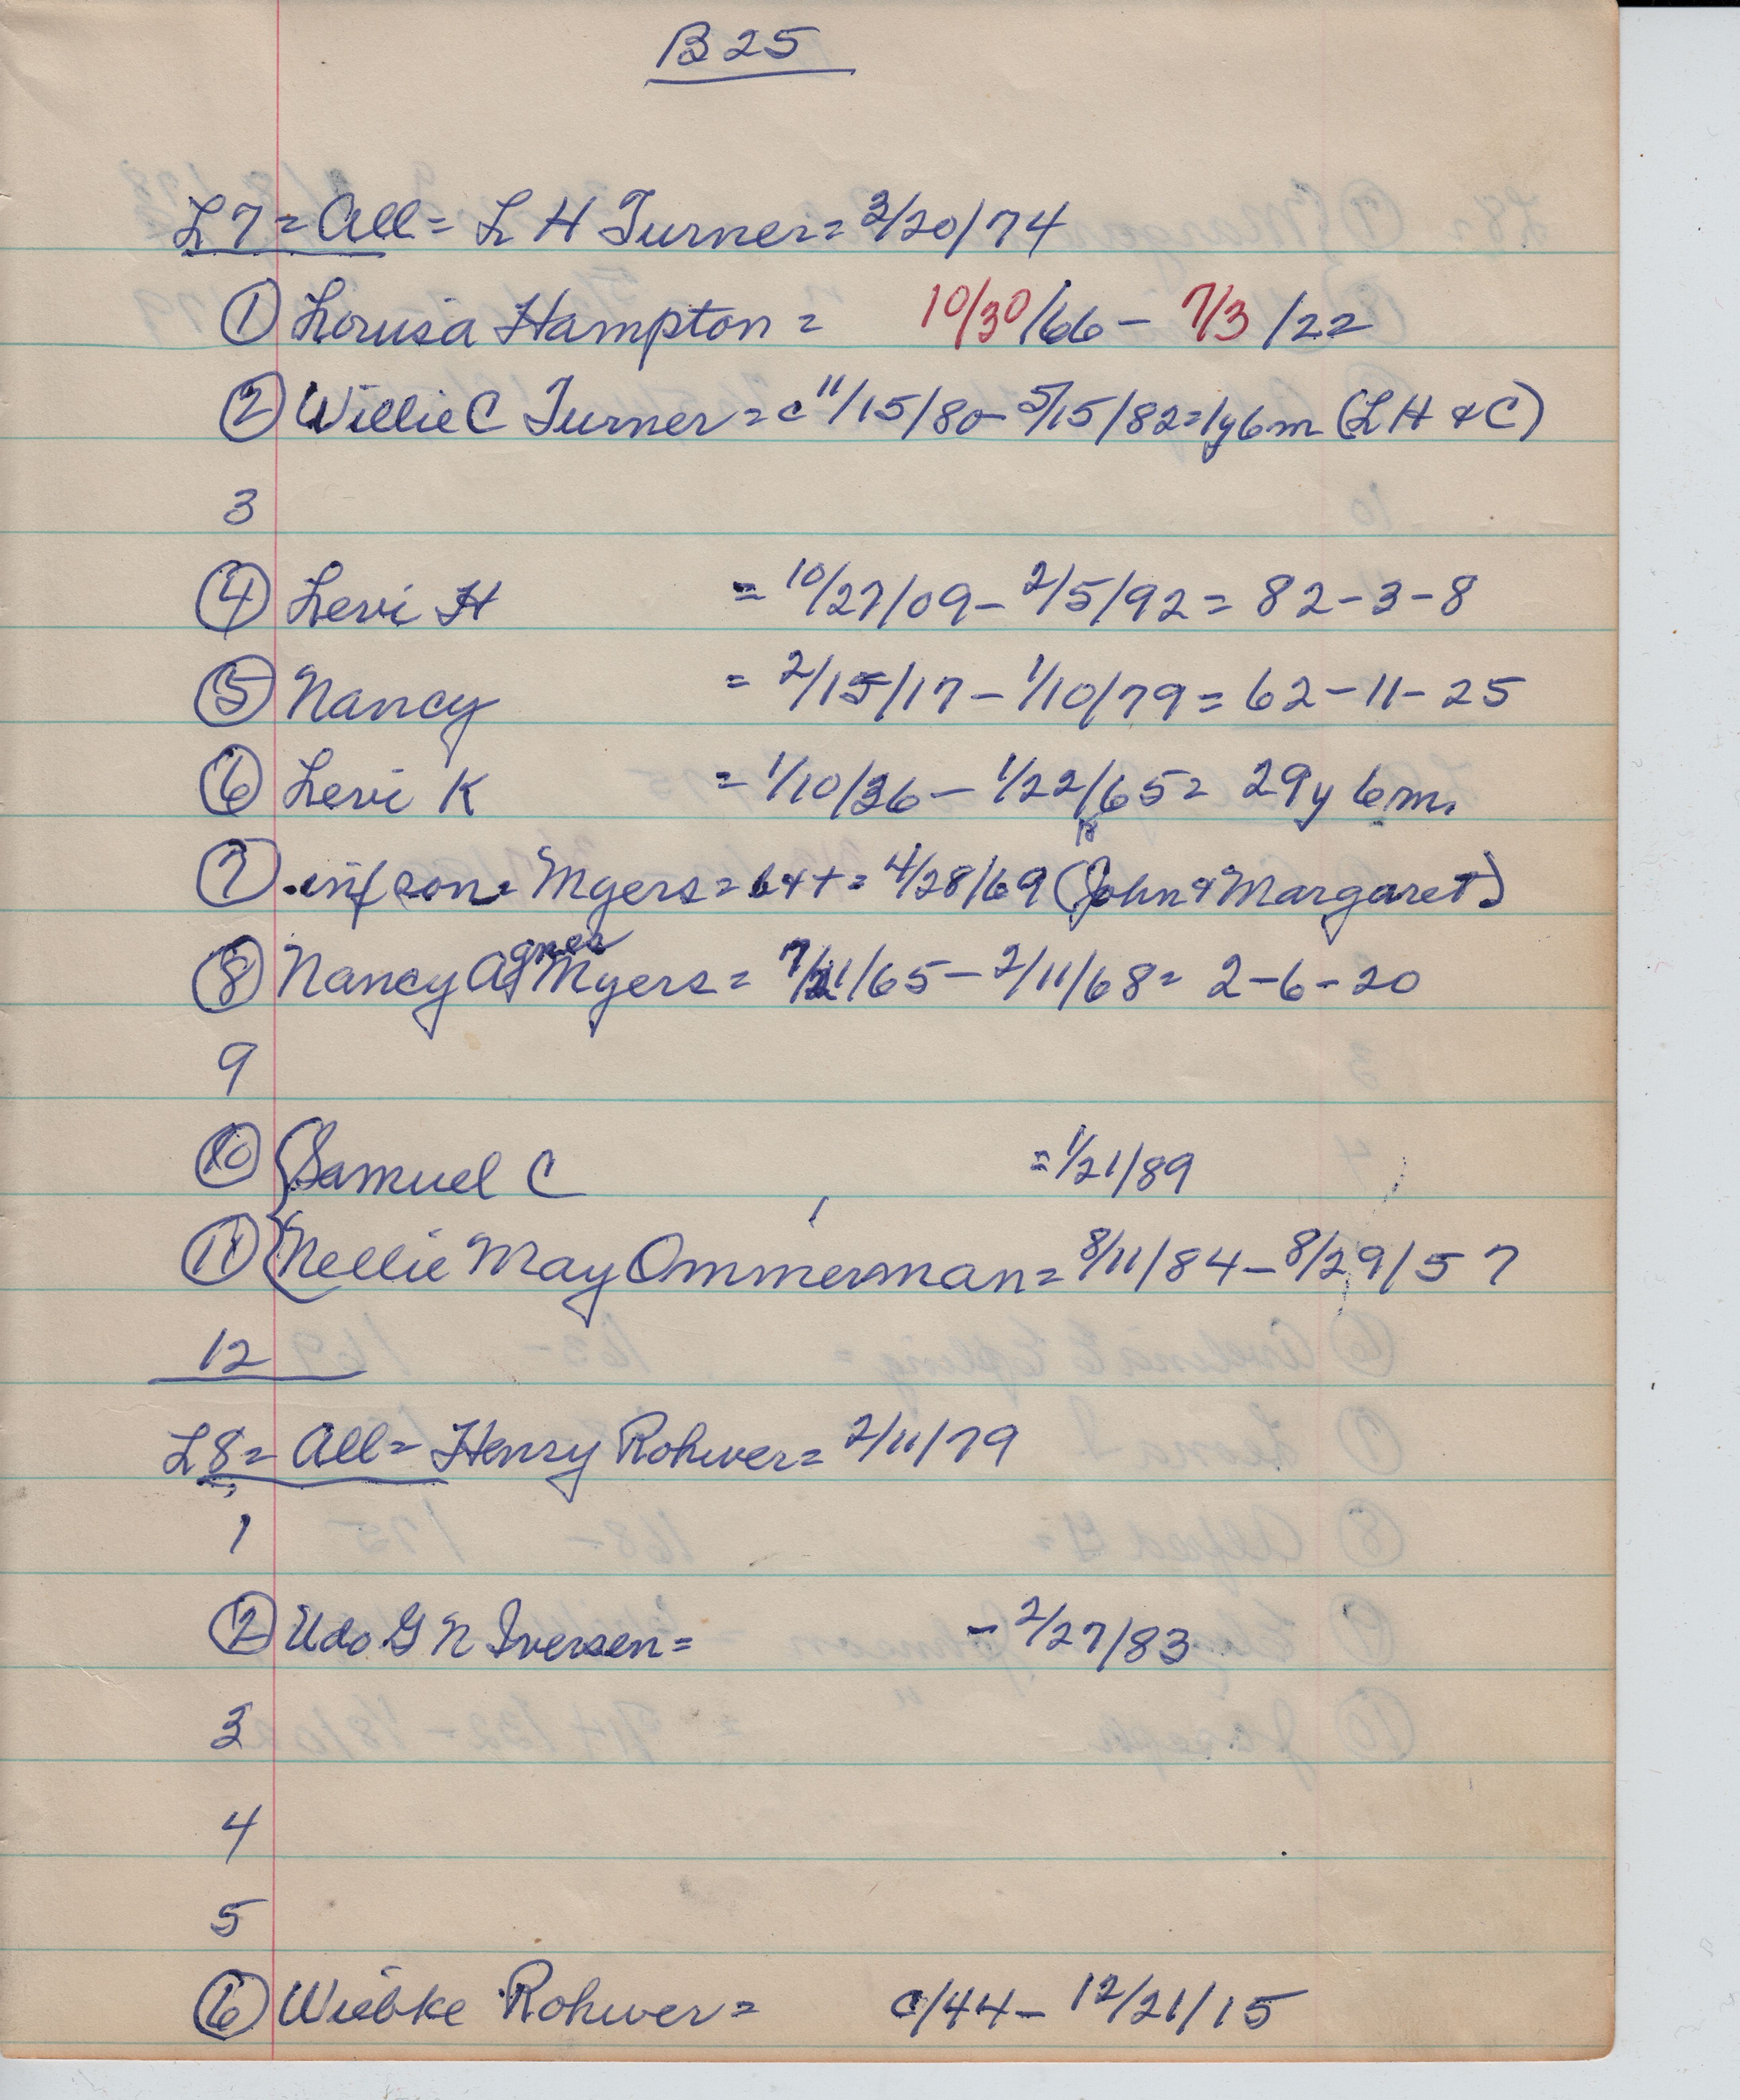 B 25
L7 = All = L H Turner = 3/20/74
① Lousia Hampton = 10/30/66 - 7/3/22
② Willie C Turner = c 11/15/80 - 5/15/82 = 1y6m (L H & C)
3
④ Levi H = 10/27/09 - 2/5/92 = 82-3-8
⑤ Nancy = 2/15/17 - 1/10/79 = 62-11-25
⑥ Levi K = 1/10/36 - 1/22/65 = 29y 6m.
⑦ inf son = Myers = b+t = 4/28/69 (John & Margaret)
⑧ Nancy Agnes Myers = 7/21/65 - 2/11/68 = 2-6-20
9
⑩ Samuel C = 1/21/89
⑪ Nellie May Ommerman = 8/11/84 - 8/29/57
12
L8 = All = Henry Rohwer = 2/11/79
1
② Udo G N Iversen = - 2/27/83
3
4
5
⑥ Wiebke Rohwer = c/44 - 12/21/15